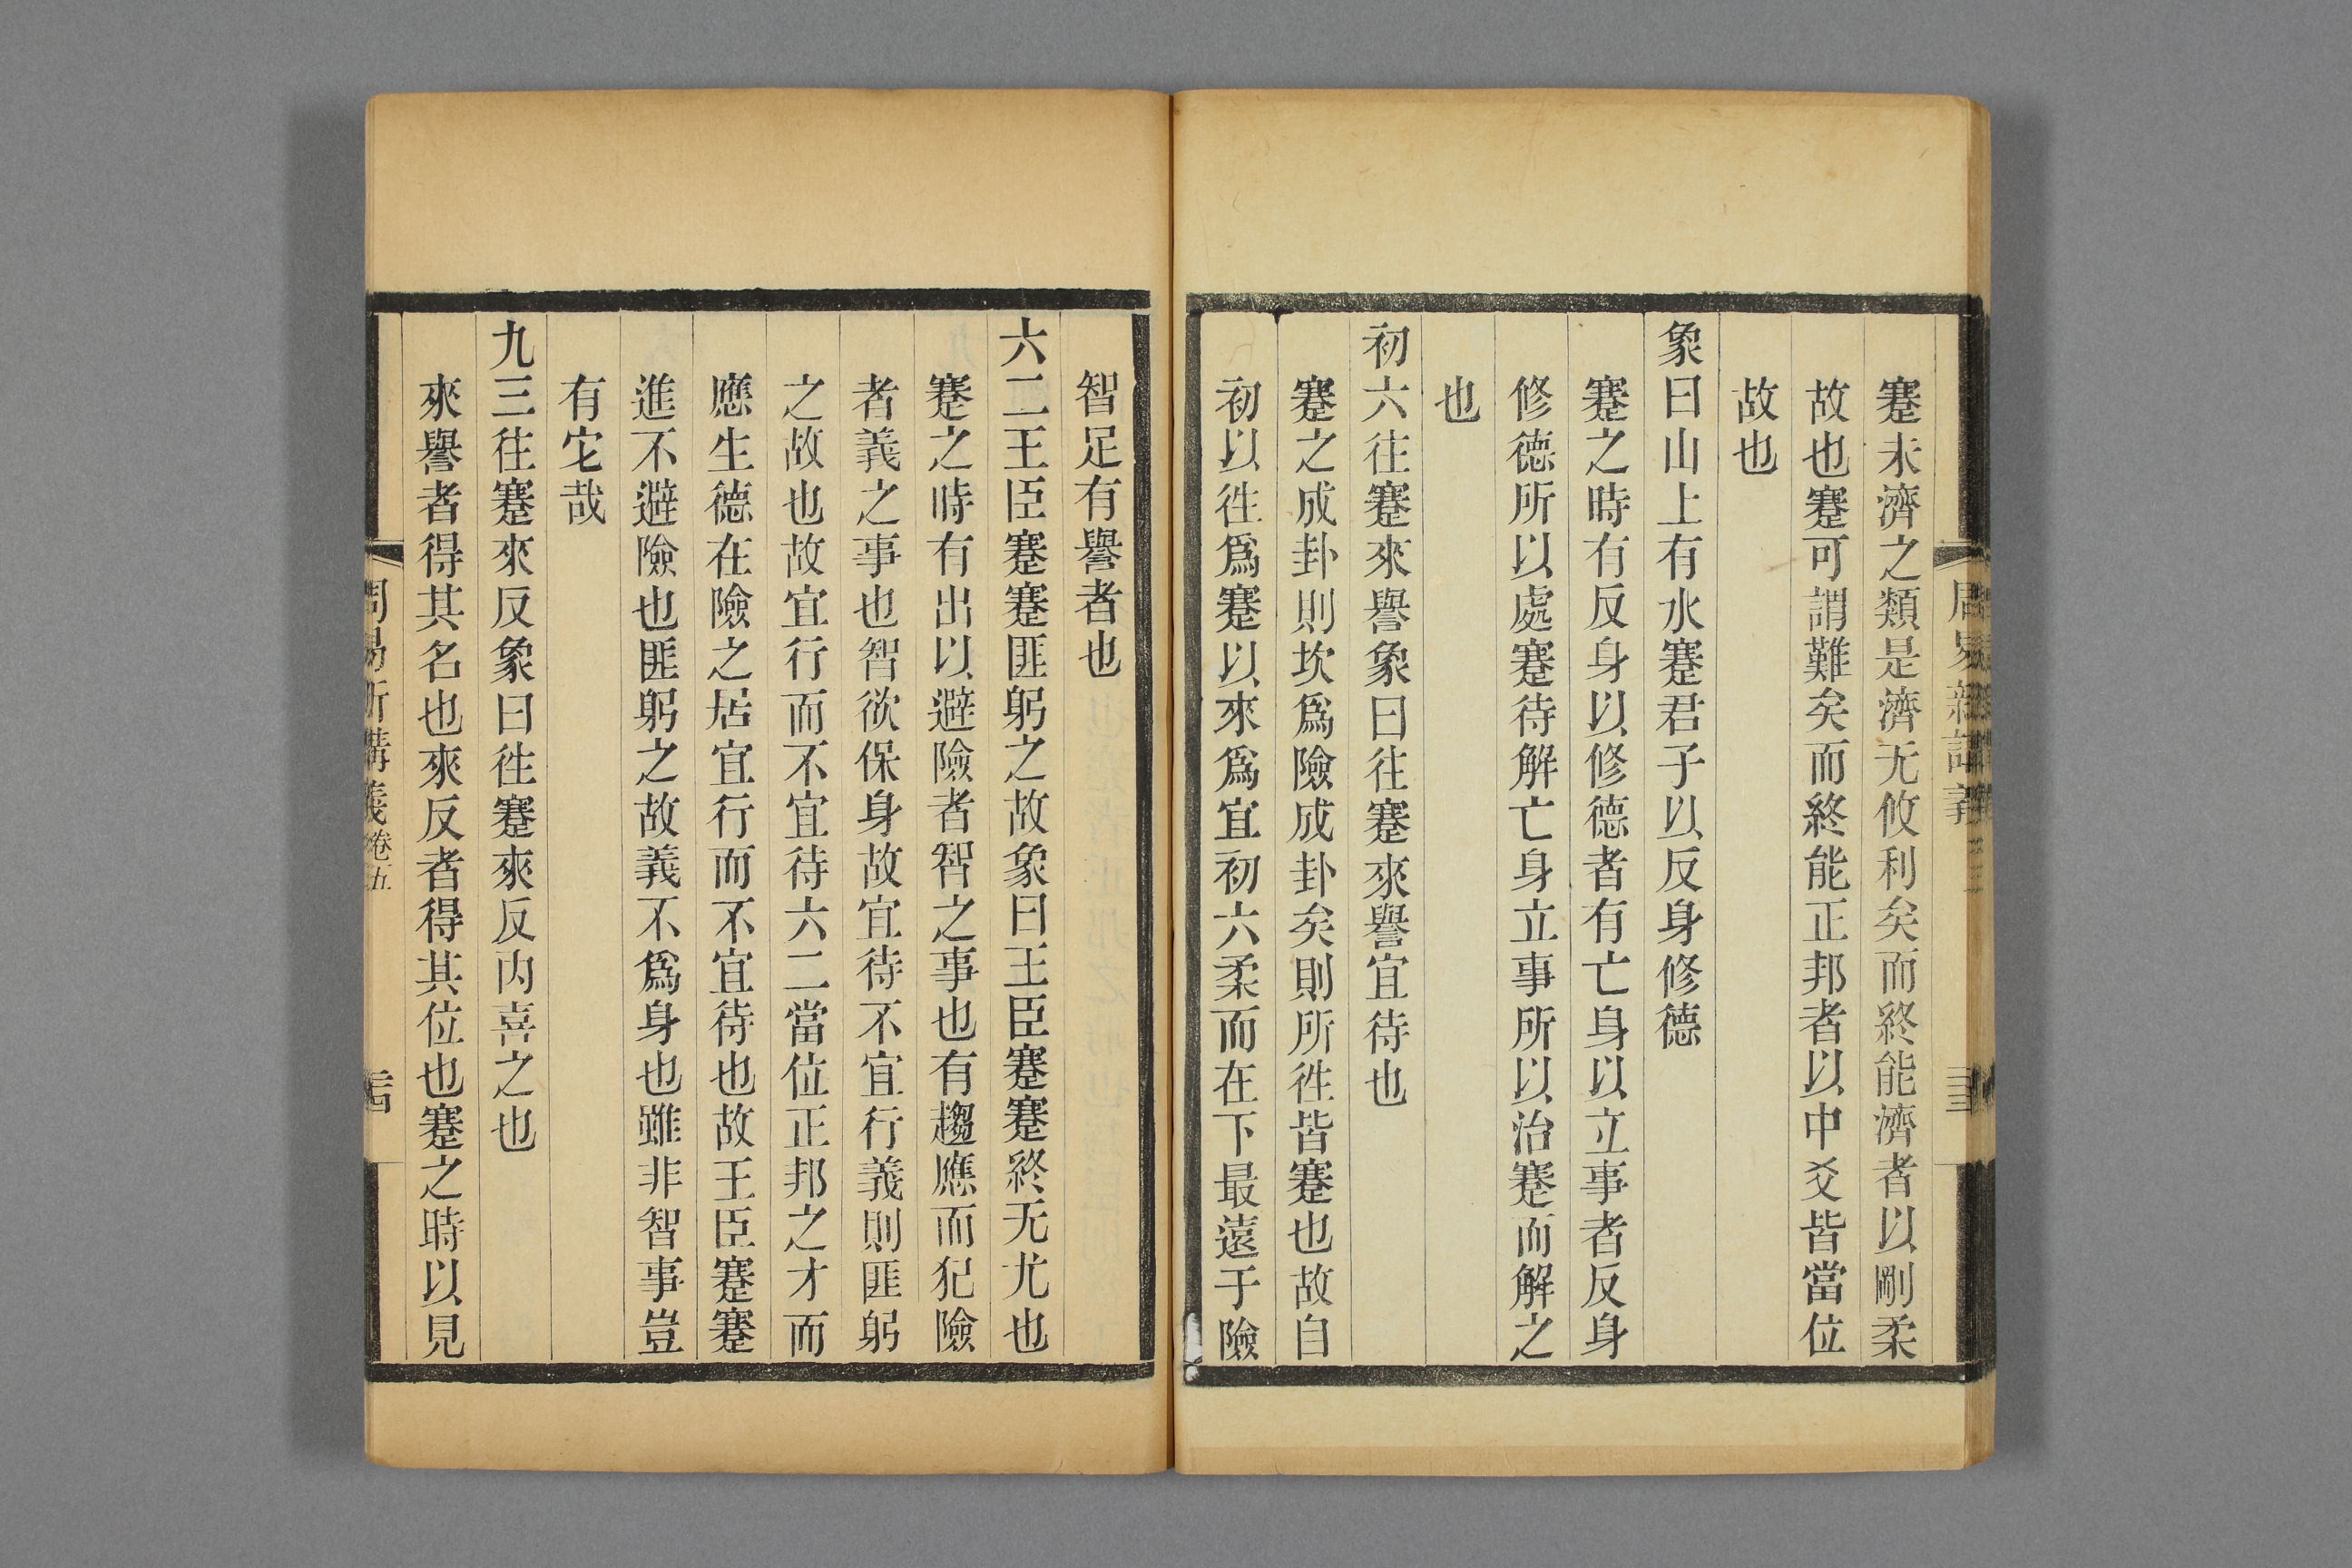 蹇未濟之類是濟无攸利矣而終能濟者以剛柔
故也蹇可謂難矣而終能正邦者以中爻皆當位
故也
象曰山上有水蹇君子以反身修德
蹇之時有反身以修德者有亡身以立事者反身
修德所以處蹇待解亡身立事所以治蹇而解之
也
初六往蹇來譽象曰往蹇來譽宜待也
蹇之成卦則坎爲險成卦矣則所徃皆蹇也故自
初以徃爲蹇以來爲宜初六柔而在下最遠于險
智足有譽者也
六二王臣蹇蹇匪躬之故象曰王臣蹇蹇終无尤也
蹇之時有出以避險者智之事也有趨應而犯險
者義之事也智欲保身故宜待不宜行義則匪躬
之故也故宜行而不宜待六二當位正邦之才而
應生德在險之居宜行而不宜待也故王臣蹇蹇
進不避險也匪躬之故義不爲身也雖非智事豈
有它哉
九三往蹇來反象曰徃蹇來反内喜之也
來譽者得其名也來反者得其位也蹇之時以見
周易新講義卷五